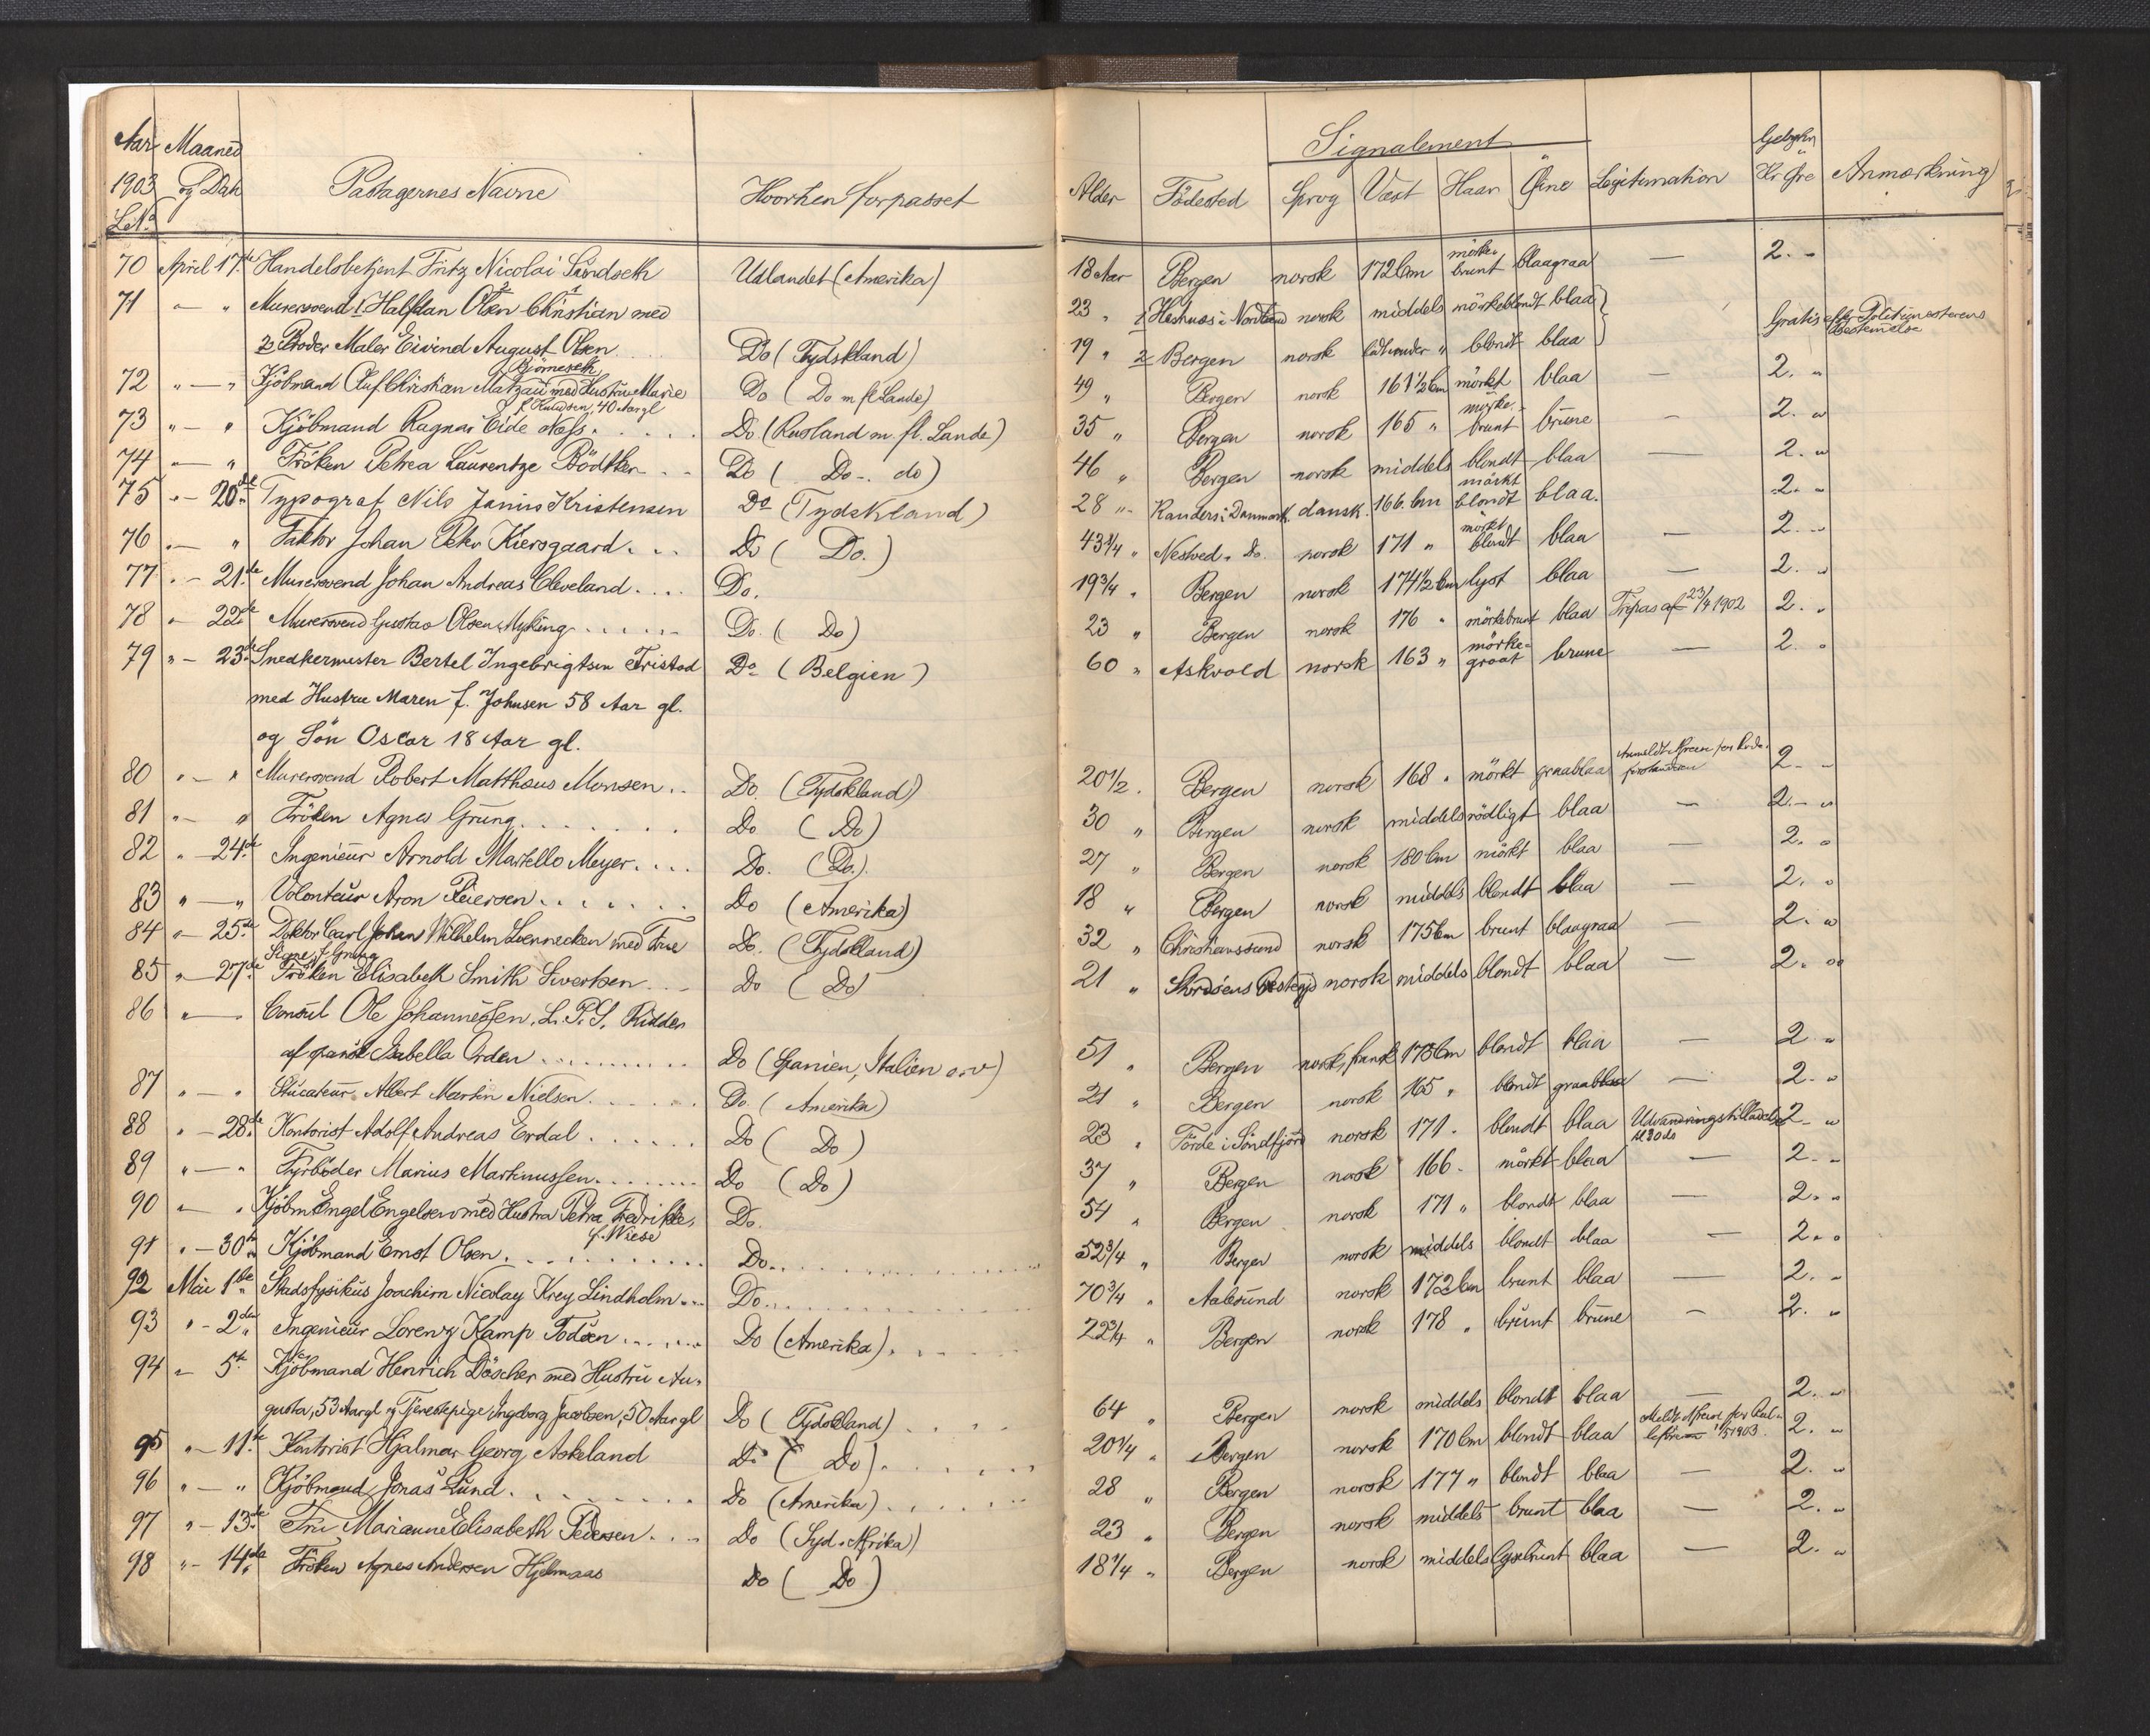 Aar Maaned Signalement Gebyhr
1903 og Dato Passagernes Navne Hvorhen forpasset Alder Födested Sprog Væxt Haar Öine Legitimation Kr Öre Anmærkning
L.No.
70 April 17de Handelsbetjent Fritz Nicolai Sundseth Udlandet (Amerika) 18 Aar Bergen norsk 172 Cm mörke-brunt blaagraa — 2. "
71 — " Murersvend 1 Halfdan Olsen Christian med 23 " 1 i Nordland norsk middels mörkeblondt blaa Gratis efter Politimesterens Bestemmelse
2 Broder Maler Eivind August Olsen Do (Tydskland) 19 " 2 Bergen norsk lidt under " blondt blaa
72 " — " Kjöbmand Oluf Christian Matzau med Hustru Marie Do (Do m fl Lande) 49 " Bergen norsk 161 1/2 Cm mörkt blaa — 2. "
f. Knudsen, 40 Aar gl
73 " — " Kjöbmand Ragnar Eide Næss Do (Rusland m. fl. Lande) 35 " Bergen norsk 165 " mörke-brunt brune — 2. "
74 " — " Fröken Petrea Laurentze Bödtker Do (Do - do) 46 " Bergen norsk middels blondt blaa — 2. "
75 " — 20de Typograf Nils Janius Kristensen Do (Tydskland) 28 " Randers i Danmark dansk 166 Cm mörkt blondt blaa. 2. "
76 " — " Faktor Johan Peter Kiersgaard Do (Do.) 43 3/4 " Nestved " Do. norsk 171 " mörkt blondt blaa — 2. "
77 " — 21de Murersvend Johan Andreas Cleveland Do. 19 3/4 " Bergen norsk 174 1/2 Cm lyst blaa — 2. "
78 " — 22de Murersvend Gustav Olsen Myking Do. (Do) 23 " Bergen norsk 176 " mörkebrunt blaa Fripas af 23/4 1902 2. "
79 " — 23de Snedkermester Bertel Ingebrigtsen Tristad Do (Belgien) 60 " Askvold norsk 163 " mörke-graat brune — 2. "
med Hustru Maren f. Johnsen 58 Aar gl.
og Sön Oscar 18 Aar gl.
80 " — " Murersvend Robert Matthæus Monsen Do. (Tydskland) 20 1/2 " Bergen norsk 168 " mörkt graablaa Anmeldt 2 - "
81 " — " Fröken Agnes Grung Do (Do) 30 " Bergen norsk middels rödligt blaa — 2. - "
82 " — 24de Ingenieur Arnold Martello Meyer Do. (Do.) 27 " Bergen norsk 180 Cm mörkt blaa — 2. "
83 " — " Volonteur Aron Peiersen Do (Amerika) 18 " Bergen norsk middels blondt blaa — 2. "
84 " — 25de Doktor Carl Johan Wilhelm Loennecken med Frue Do. (Tydskland) 32 " Christianssund norsk 175 Cm brunt blaagraa — 2. "
Signe f. Grung
85 " — 27de Fröken Elisabeth Smith Sivertsen Do (Do) 21 " norsk middels blondt blaa — 2. "
86 " — " Consul Ole Johannessen, L. P. S. Ridder
af spansk Isabella Orden Do (Spanien, Italien o.v) 51 " Bergen norsk, fransk 175 Cm blondt blaa — 2 "
87 " — " Stucateur Albert Martin Nielsen Do. (Amerika) 21 " Bergen norsk 165 " blondt graablaa — 2. "
88 " — 28de Kontorist Adolf Andreas Erdal Do (Do) 23 " Förde i Söndfjord norsk 171 " blondt blaa Udvandringstilladelse 2 - "
89 " — " Fyrböder Marius Martinussen Do (Do) 37 " Bergen norsk 166 - mörkt blaa — 2 - "
90 " — " Kjöbm. Engel Engelsen med Hustru Petra Fredrikke, Do. 54 " Bergen norsk 171 " blondt blaa — 2. "
f. Wiese
91 " — 30te Kjöbmand Ernst Olsen Do. 52 3/4 " Bergen norsk middels blondt blaa — 2. "
92 Mai 1ste Stadsfysikus Joachim Nicolay Krey Lindholm Do. 70 3/4 " Aalesund norsk 172 Cm brunt blaa — 2. "
93 " — 2den Ingenieur Lorenz Kamp Todsen Do (Amerika) 22 3/4 " Bergen norsk 178 " brunt brune — 2. "
94 " — 5te Kjöbmand Henrich Döscher med Hustru Au-
gusta, 53 Aar gl og Tjenestepige Ingeborg Jacobsen, 50 Aar gl Do (Tydskland) 64 " Bergen norsk middels blondt blaa — 2. "
95 " — 11te Kontorist Hjalmar Georg Askeland Do (Do) 20 1/4 " Bergen norsk 170 Cm blondt blaa 1903. 2. "
96 " — " Kjöbmand Jonas Lund Do (Amerika) 28 " Bergen norsk 177 " blondt blaa — 2. "
97 " — 13de Fru Marianne Elisabeth Pedersen Do (Syd-Afrika) 23 " Bergen norsk middels brunt blaa — 2. "
98 " — 14de Fröken Agnes Andersen Hjelmaas Do (Do) 18 1/4 " Bergen norsk middels lysebrunt blaa — 2. "